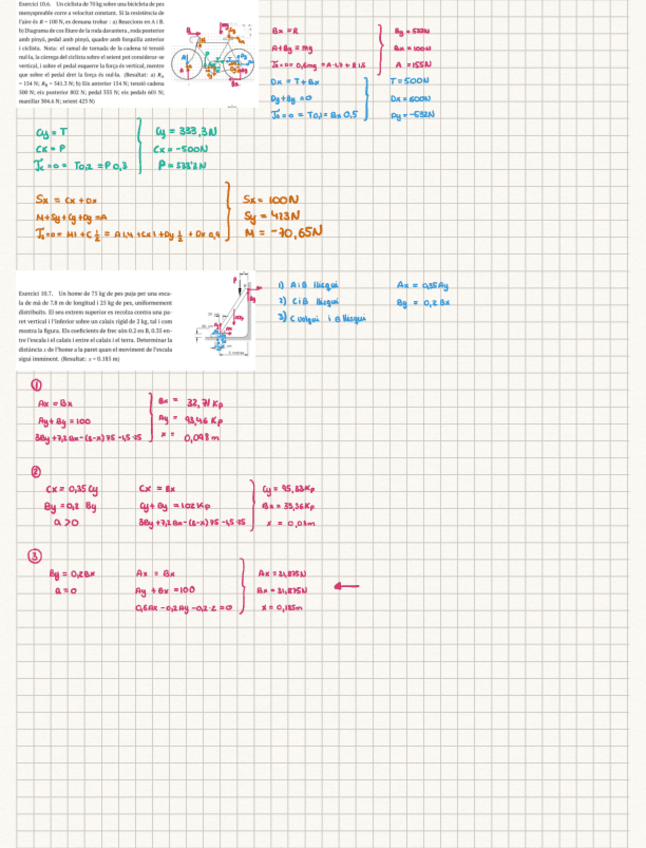 Exercici 10.6. Un ciclista de 70 kg sobre una bicicleta de pes
menyspreable corre a velocitat constant. Si la resistència de
l'aire és R = 100 N, es demana trobar: a) Reaccions en A i B.
b) Diagrama de cos lliure de la roda davantera, roda posterior
amb pinyó, pedal amb pinyó, quadre amb forquilla anterior
i ciclista. Nota: el ramal de tornada de la cadena té tensió
nul·la, la càrrega del ciclista sobre el seient pot considerar-se
vertical, i sobre el pedal esquerre la força és vertical, mentre
que sobre el pedal dret la força és nul·la. (Resultat: a) R_A
= 154 N; R_B = 541.3 N; b) Eix anterior 154 N; tensió cadena
500 N; eix posterior 802 N; pedal 333 N; eix pedals 601 N;
manillar 304.6 N; seient 423 N)
Bx = R
A+By = mg
A = 155N
Bx = 100N
Dx = T + Bx
Dy + By = 0
T = 500N
Dx = 600N
Dy = -532N
Cy = T
Cx = P
Cy = 333,3N
Cx = -500N
Sx = Cx + Dx
M+Sy+Cy+Dy=A
Sx = 100N
Sy = 423N
M = -70,65N
Exercici 10.7. Un home de 75 kg de pes puja per una esca-
la de mà de 7.8 m de longitud i 25 kg de pes, uniformement
distribuïts. El seu extrem superior es recolza contra una pa-
ret vertical i l'inferior sobre un calaix rígid de 2 kg, tal i com
mostra la figura. Els coeficients de frec són 0.2 en B, 0.35 en-
tre l'escala i el calaix i entre el calaix i el terra. Determinar la
distància x de l'home a la paret quan el moviment de l'escala
sigui imminent. (Resultat: x = 0.185 m)
1) A i B llisqui
2) C i B llisqui
3) C volqui i B llisqui
Ax = 0,35Ay
By = 0,2Bx
①
Ax = Bx
Ay + By = 100
3By +7,2Bx -(3-x)75 -1,5·25
Bx = 32,71 Kp
Ay = 93,46 Kp
x = 0,098m
②
Cx = 0,35 Cy
By = 0,2 By
a > 0
Cx = Bx
Cy + By = 102Kp
3By +7,2Bx -(3-x)75 -1,5·25
Bx = 33,56Kp
x = 0,01m
③
By = 0,2Bx
a = 0
Ax = Bx
Ay + Bx = 100
0,6Ax -0,2Ay -0,2·2 = 0
Ax = 31,875N
Bx = 31,875N
x = 0,185m